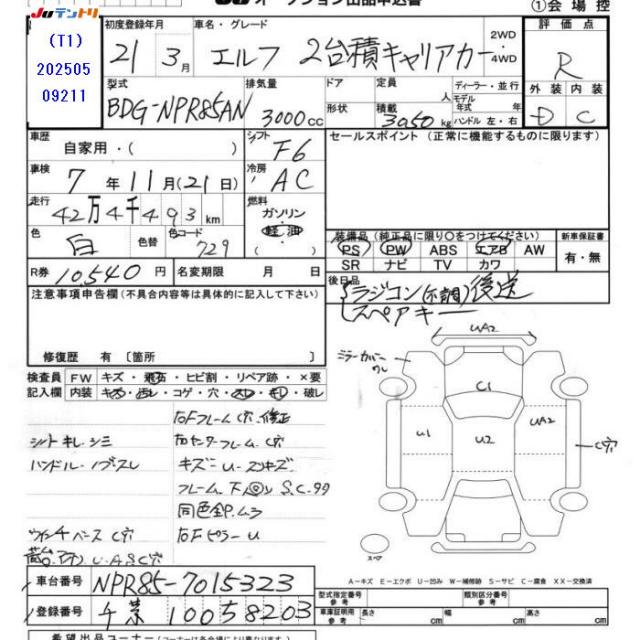 JUテントリ オークション出品申込書 ①会場控
(T1)
202505
09211
初度登録年月 車名・グレード 評価点
21 3月 エルフ 2台積キャリアカー 2WD 4WD R
型式 排気量 ドア 定員 ディーラー・並行 外装 内装
BDG-NPR85AN 3000cc 人 モデル年式 年 D C
形状 積載 3050kg ハンドル 左・右
車歴 シフト セールスポイント (正常に機能するものに限ります)
自家用・( ) F6
車検 冷房
7年11月(21日) AC
走行 燃料
42万4千493km ガソリン・軽油
色 色替 色コード ( )
白 729
装備品 (純正品に限り○をつけてください) 新車保証書
PS PW ABS エアB AW 有・無
SR ナビ TV カワ
R券 10,540円 名変期限 月 日
後日品 ラジコン(不調)後送
スペアキー
注意事項申告欄(不具合内容等は具体的に記入して下さい)
修復歴 有〔箇所 〕
検査員 FW キズ・飛石・ヒビ割・リペア跡・×要
記入欄 内装 キズ・汚レ・コゲ・穴・スレ・キレ・破レ
右Fフレーム C穴、修正
シートキレ、シミ 右センターフレーム C穴
ハンドル・ノブスレ キズ=U=スリキズ
フレーム下回り S.C.タタ
同色鈑ムラ
ウインチベース C穴 右Fピラー U
荷台アオリ U.A.S.C穴
UA2
ミラーカバーのし
C1
U1 U2 UA2 C穴
スペア
A-キズ E-エクボ U-凹み W-補修跡 S-サビ C-腐食 XX-交換済
車台番号 NPR85-7015323
型式指定番号 参考 類別区分番号 参考
登録番号 千葉100 58203
車庫証明用 参考 長さ cm 幅 cm 高さ cm
希望出品コーナー(コーナーは各会場により異なります)